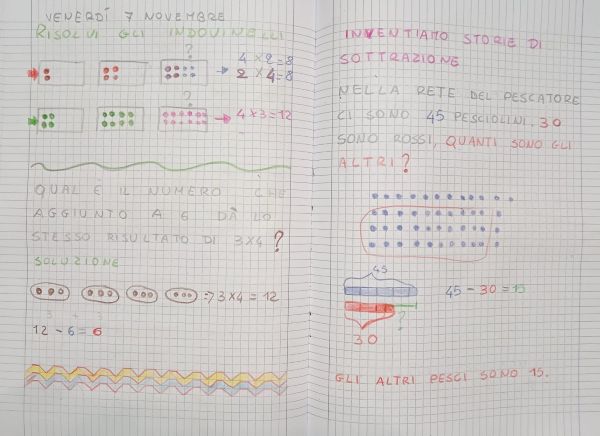 VENERDÍ 7 NOVEMBRE
RISOLVI GLI INDOVINELLI
?
4 × 2 = 8
2 × 4 = 8
?
4 × 3 = 12
QUAL È IL NUMERO CHE
AGGIUNTO A 6 DÀ LO
STESSO RISULTATO DI 3×4?
SOLUZIONE
3×4 = 12
3 + 3
12 - 6 = 6
INVENTIAMO STORIE DI
SOTTRAZIONE
NELLA RETE DEL PESCATORE
CI SONO 45 PESCIOLINI. 30
SONO ROSSI, QUANTI SONO GLI
ALTRI?
45
45 - 30 = 15
?
30
GLI ALTRI PESCI SONO 15.